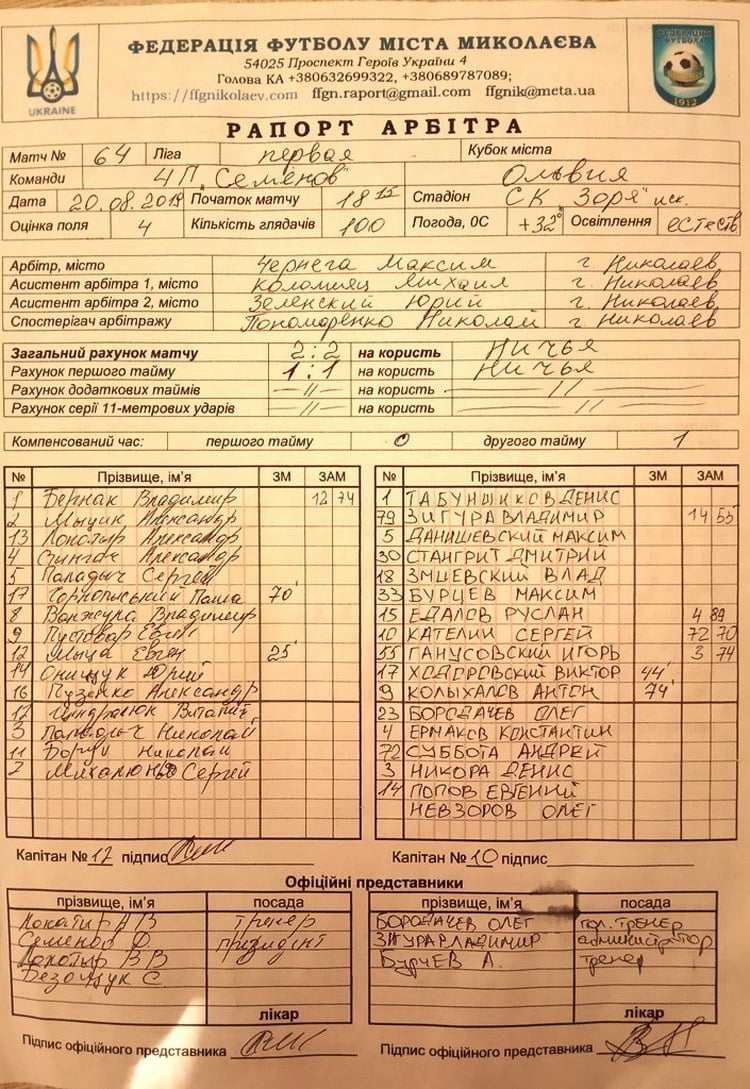 ФЕДЕРАЦІЯ ФУТБОЛУ МІСТА МИКОЛАЄВА
54025 Проспект Героїв України 4
Голова КА +380632699322, +380689787089;
https://ffgnikolaev.com ffgn.raport@gmail.com ffgnik@meta.ua
UKRAINE
1912
РАПОРТ АРБІТРА
Матч № 64 Ліга первая Кубок міста
Команди ЧП "Семенов" Ольвия
Дата 20.08.2019 Початок матчу 18 15 Стадіон СК "Зоря" иск.
Оцінка поля 4 Кількість глядачів 100 Погода, 0С +32° Освітлення естеств
Арбітр, місто Чернега Максим г. Николаев
Асистент арбітра 1, місто Коломиец Михаил г. Николаев
Асистент арбітра 2, місто Зеленский Юрий г. Николаев
Спостерігач арбітражу Пономаренко Николай г. Николаев
Загальний рахунок матчу 2:2 на користь НИЧЬЯ
Рахунок першого тайму 1:1 на користь НИЧЬЯ
Рахунок додаткових таймів —//— на користь —//—
Рахунок серії 11-метрових ударів —//— на користь —//—
Компенсований час: першого тайму 0 другого тайму 1
№ Прізвище, ім'я ЗМ ЗАМ № Прізвище, ім'я ЗМ ЗАМ
1 Бернак Владимир 12 74 1 ТАБУНЩИКОВ ДЕНИС
2 Мыцик Александр 79 ЗИГУРА ВЛАДИМИР 14 55
13 Локотыр Александр 5 ДАНИШЕВСКИЙ МАКСИМ
4 Александр 30 СТАНГРИТ ДМИТРИЙ
5 Паладыч Сергей 18 ЗМИЕВСКИЙ ВЛАД
17 Паша 70' 33 БУРЦЕВ МАКСИМ
8 Ванжула Владимир 15 ЕДАЛОВ РУСЛАН 4 89
9 Пустовар Евген 10 КАТЕЛИН СЕРГЕЙ 72 70
12 Мыца Евген 25' 55 ГАНУСОВСКИЙ ИГОРЬ 3 74
14 Онищук Юрий 17 ХОДОРОВСКИЙ ВИКТОР 44'
16 Пузенко Александр 9 КОЛЫХАЛОВ АНТОН 74'
17 Виталий 23 БОРОДАЧЕВ ОЛЕГ
3 Паладыч Николай 4 ЕРМАКОВ КОНСТАНТИН
11 Николай 72 СУББОТА АНДРЕЙ
7 Сергей 3 НИКОРА ДЕНИС
14 ПОПОВ ЕВГЕНИЙ
НЕВЗОРОВ ОЛЕГ
Капітан № 12 підпис Капітан № 10 підпис
Офіційні представники
прізвище, ім'я посада прізвище, ім'я посада
Локатыр А В тренер БОРОДАЧЕВ ОЛЕГ гол. тренер
Семенов Ю. президент ЗИГУРА ВЛАДИМИР администратор
Локотыр В В БУРЦЕВ А. тренер
Безощук С.
лікар лікар
Підпис офіційного представника Підпис офіційного представника